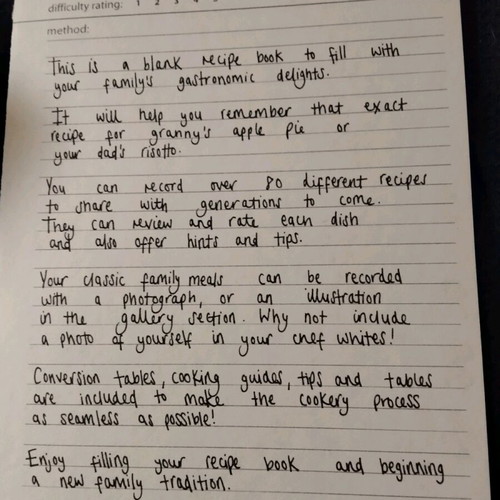 difficulty rating: 1 2 3 4
method:
This is a blank recipe book to fill with
your family's gastronomic delights.
It will help you remember that exact
recipe for granny's apple pie or
your dad's risotto.
You can record over 80 different recipes
to share with generations to come.
They can review and rate each dish
and also offer hints and tips.
Your classic family meals can be recorded
with a photograph, or an illustration
in the gallery section. Why not include
a photo of yourself in your chef whites!
Conversion tables, cooking guides, tips and tables
are included to make the cookery process
as seamless as possible!
Enjoy filling your recipe book and beginning
a new family tradition.